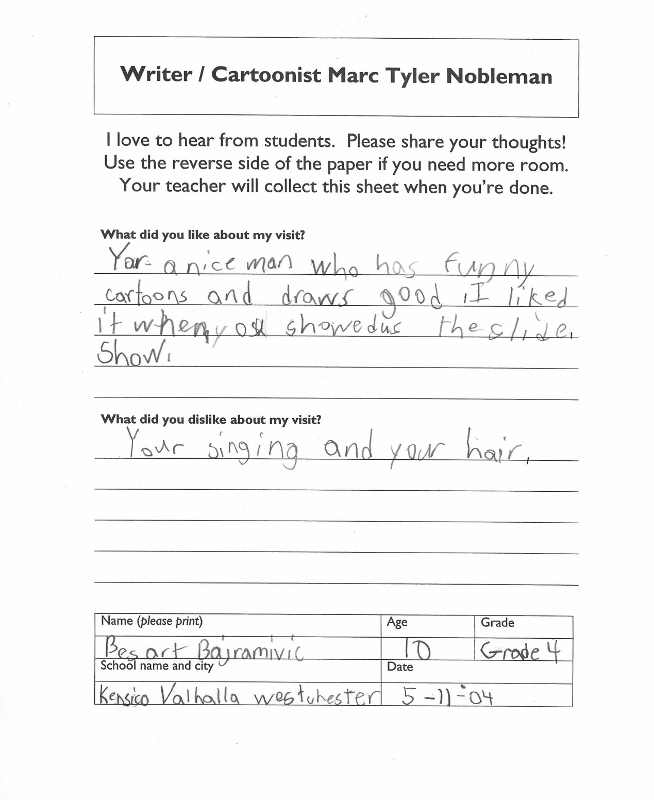 Writer / Cartoonist Marc Tyler Nobleman
I love to hear from students. Please share your thoughts!
Use the reverse side of the paper if you need more room.
Your teacher will collect this sheet when you're done.
What did you like about my visit?
Your a nice man who has funny
cartoons and draws good. I liked
it when you showed us the slide
Show.
What did you dislike about my visit?
Your singing and your hair.
Name (please print) Age Grade
Besart Bajramivic 10 Grade 4
School name and city Date
Kensico Valhalla westchester 5-11-04